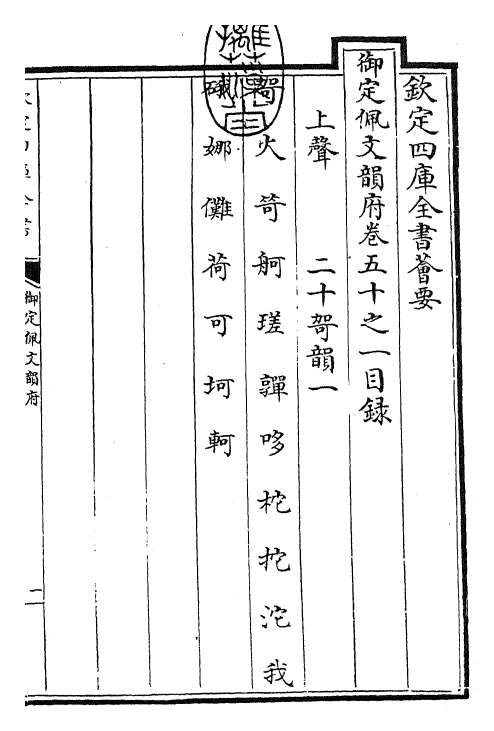 欽定四庫全書薈要
御定佩文韻府卷五十之一目録
上聲　二十哿韻一
哿火笴舸瑳嚲哆柁拕沱我
娜儺荷可坷軻
御定佩文韻府